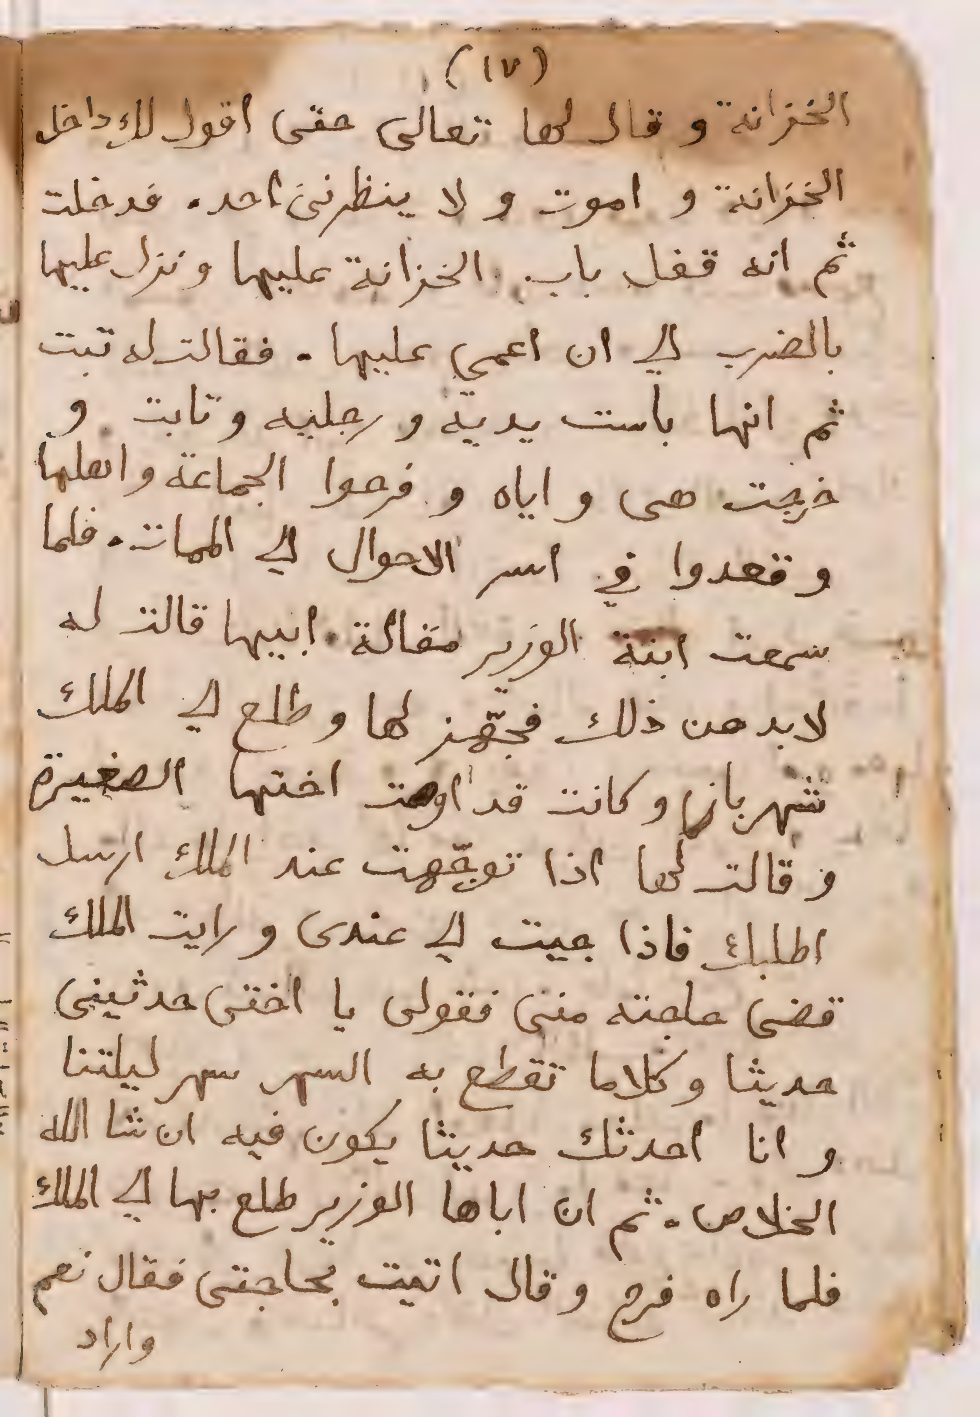 (١٧)
الخزانة و قال لها تعالى حتى اقول لك داخل
الخزانة و اموت و لا ينظرنى احد . فدخلت
ثم انه قفل باب الخزانة عليها و نزل عليها
بالضرب الي ان اعمي عليها . فقالت له تبت
ثم انها باست يديه و رجليه و تابت و
خرجت هى و اياه و فرحوا الجماعة و اهلها
و قعدوا في اسر الاحوال الي الممات . فلما
سمعت ابنة الوزير مقالة ابيها قالت له
لابد من ذلك فجهّز لها و طلع الي الملك
شهرباز و كانت قد اوصت اختها الصغيرة
و قالت لها اذا توجّهت عند الملك ارسل
اطلبك فاذا جيت الي عندى و رايت الملك
قضى حاجته منى فقولى يا اختى حدثينى
حديثا و كلاما تقطع به السهر سهر ليلتنا
و انا احدثك حديثا يكون فيه ان شا الله
الخلاص . ثم ان اباها الوزير طلع بها الي الملك
فلما راه فرح و قال اتيت بحاجتى فقال نعم
و اراد